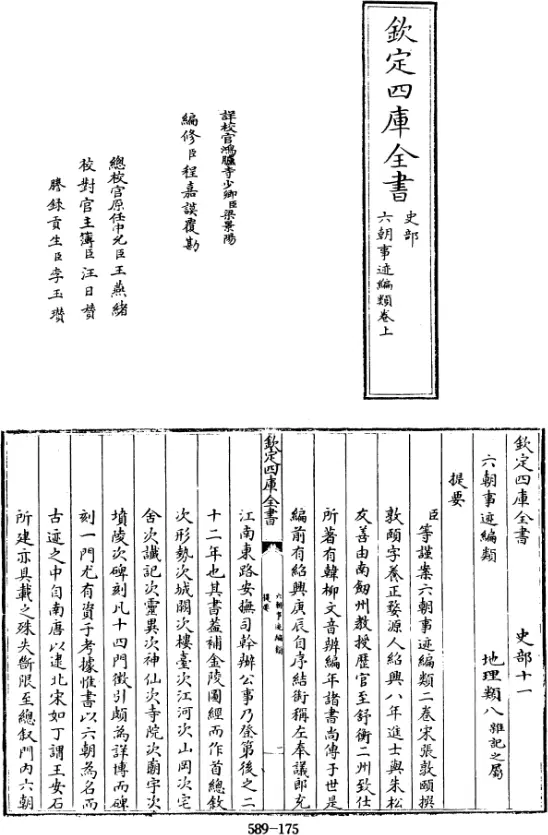 欽定四庫全書
史部
六朝事迹編類卷上
詳校官鴻臚寺少卿臣梁景陽
編修臣程嘉謨覆勘
總校官原任中允臣王燕緒
校對官主簿臣汪日贊
謄錄貢生臣李玉瓚
欽定四庫全書 史部十一
六朝事迹編類 地理類八雜記之屬
提要
臣等謹案六朝事迹編類二卷宋張敦頤撰
敦頤字養正婺源人紹興八年進士與朱松
友善由南劒州教授歷官至舒衡二州致仕
所著有韓柳文音辨編年諸書尚傳于世是
編前有紹興庚辰自序結銜稱左奉議郎充
欽定四庫全書
六朝事迹編類
提要
江南東路安撫司幹辦公事乃登第後之二
十二年也其書葢補金陵圖經而作首總敘
次形勢次城闕次樓臺次江河次山岡次宅
舍次讖記次靈異次神仙次寺院次廟宇次
墳陵次碑刻凡十四門徵引頗為詳博而碑
刻一門尤有資于考據惟書以六朝為名而
古迹之中自南唐以逮北宋如丁謂王安石
所建亦具載之殊失斷限至總叙門内六朝
589-175